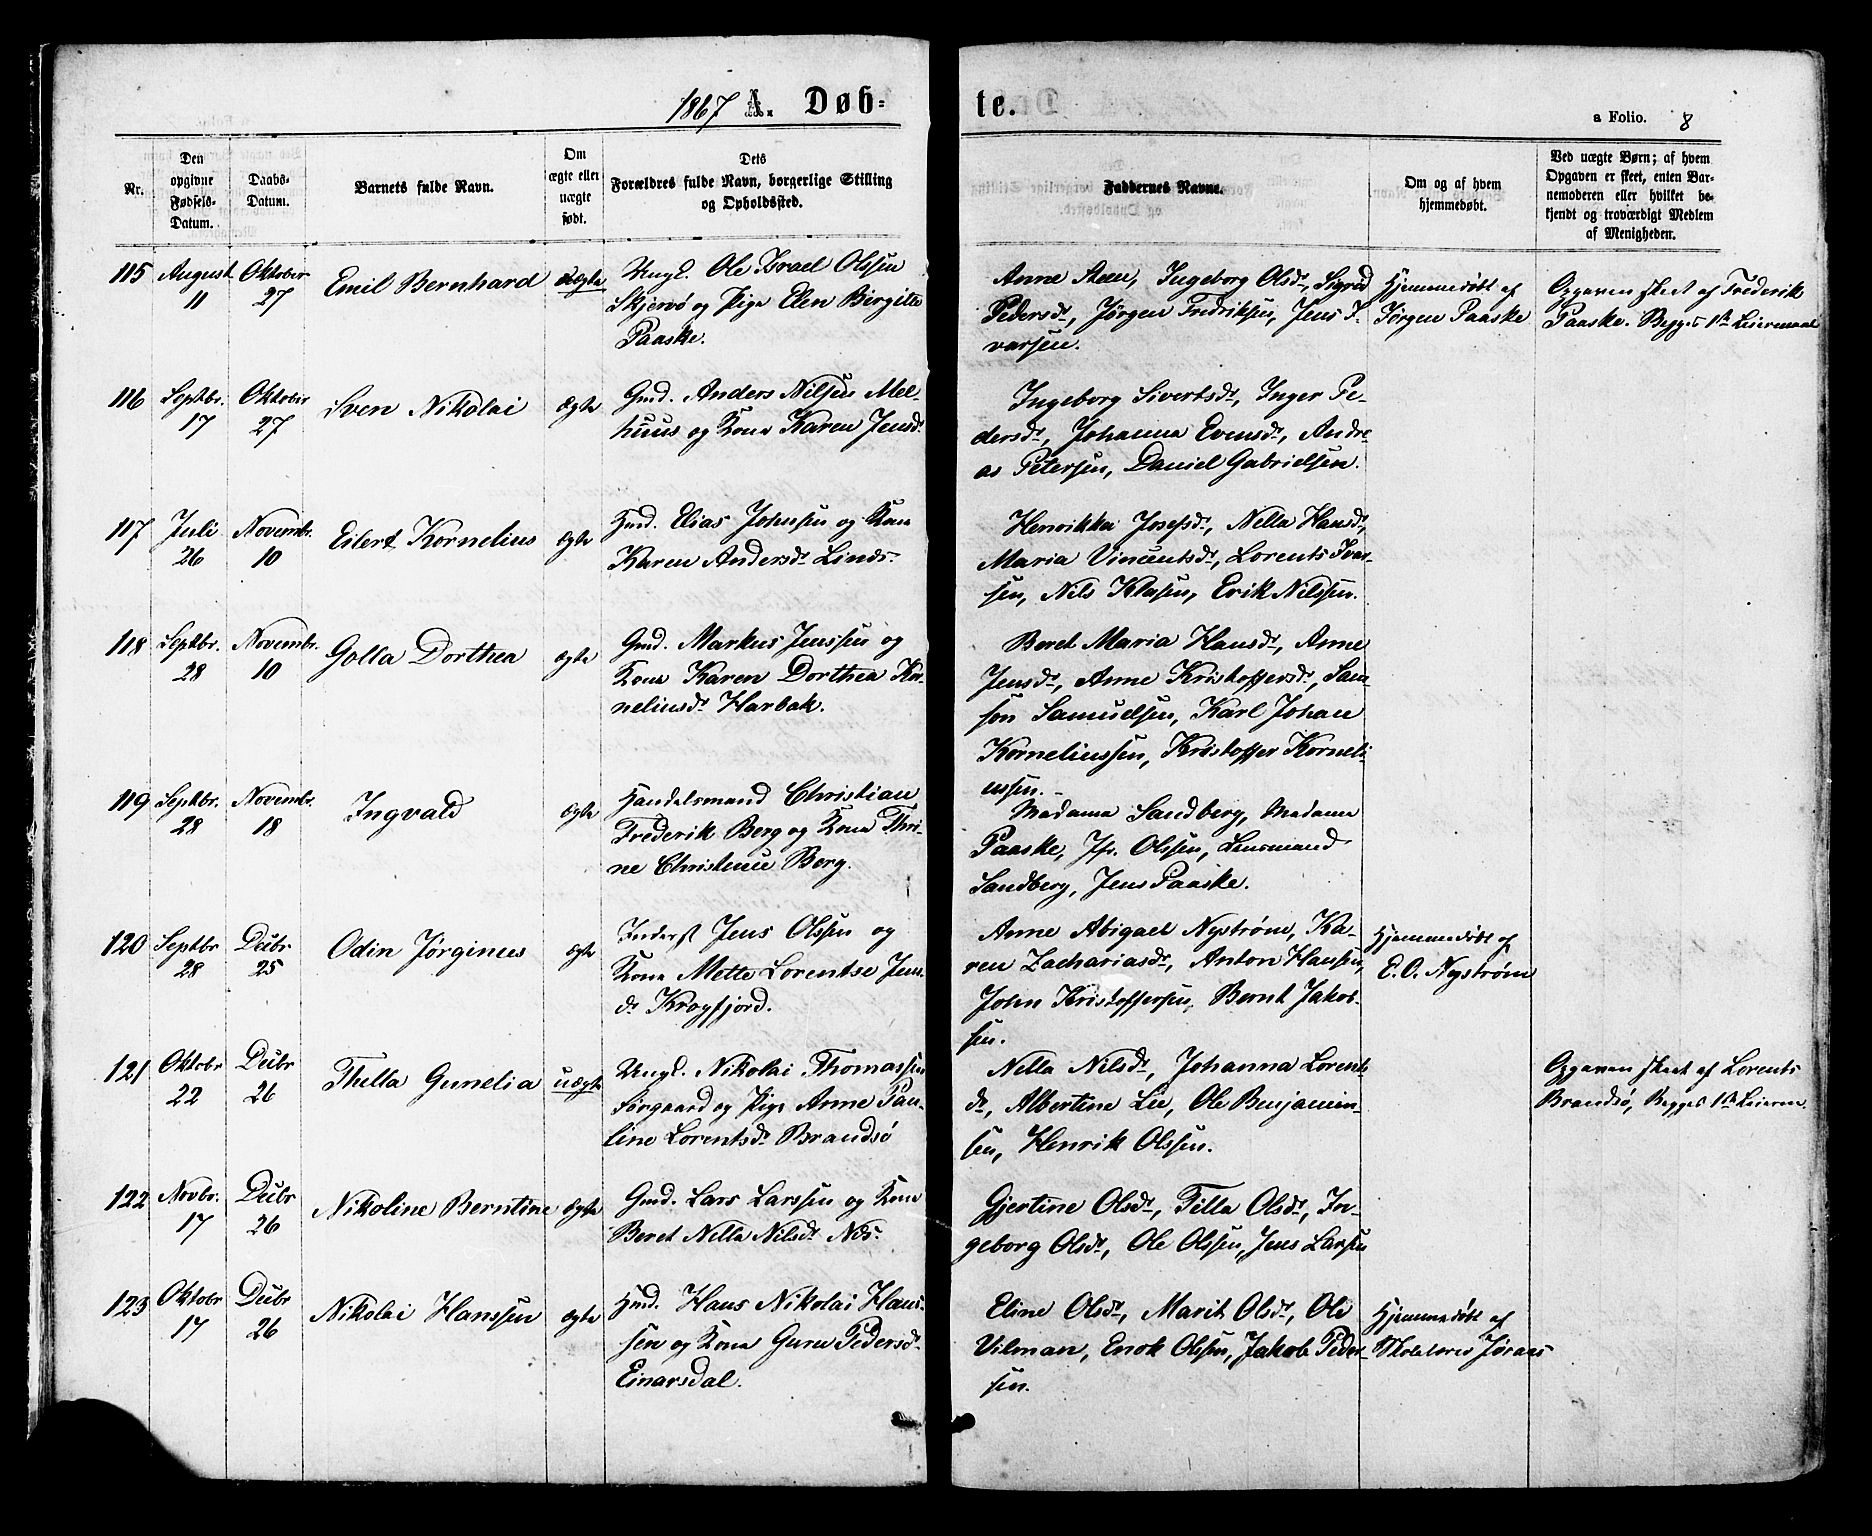 1867 A. Døb-
te.
a Folio. 8
Nr.
Den opgivne Fødsels-Datum.
Daabs-Datum.
Barnets fulde Navn.
Om ægte eller uægte født.
Dets Forældres fulde Navn, borgerlige Stilling og Opholdssted.
Faddernes Navne.
Om og af hvem hjemmedøbt.
Ved uægte Børn; af hvem Opgaven er skeet, enten Barnemoderen eller hvilket bekjendt og troværdigt Medlem af Menigheden.
115 August 11 Oktober 27 Emil Bernhard uægte
Ungk. Ole Israel Olssen
Skjervø og Pige Elen Birgitte
Paaske.
Anne Steen, Ingeborg Olsdr, Sigrid
Pedersdr, Jørgen Fredriksen, Jens I-
varsen.
Hjemmedøbt af
Jørgen Paaske
Opgaven skeet af Frederik
Paaske. Begges 1ste Leiermaal
116 Septbr. 17 Oktober 27 Sven Nikolai ægte
Gmd. Anders Nilsen Mel-
huus og Kone Karen Jensdr
Ingeborg Sivertsdr, Inger Pe-
dersdr, Johanna Evensdr, Andre-
as Petersen, Daniel Gabrielsen.
117 Juli 26 Novembr. 10 Eilert Kornelius ægte
Hmd. Elias Johnsen og Kone
Karen Andersdr Linds-
Henrikka Josefsdr, Nella Hansdr,
Maria Vincentsdr, Lorents Ivar-
sen, Nils Klasen, Erik Nilssen.
118 Septbr. 28 Novembr. 10 Golla Dorthea ægte
Gmd. Markus Jenssen og
Kone Karen Dorthea Kor-
neliusdr Harbak.
Beret Maria Hansdr, Anne
Jensdr, Anne Kristoffersdr, Sam-
son Samuelsen, Karl Johan
Korneliussen, Kristoffer Korneli-
ussen.
119 Septbr. 28 Novembr. 18 Ingvald ægte
Handelsmand Christian
Frederik Berg og Kone Thri-
ne Christence Berg.
Madame Sandberg, Madame
Paaske, Jfr. Olssen, Lensmand
Sandberg, Jens Paaske.
120 Septbr 28 Decbr 25 Odin Jørginus ægte
Inderst Jens Olssen og
Kone Mette Lorentse Jens-
dr Krogfjord.
Anne Abigael Nystrøm, Ka-
ren Zachariasdr, Anton Hansen,
John Kristoffersen, Bernt Jakob-
sen.
Hjemmedøbt af
E. O. Nystrøm
121 Oktobr 22 Decbr 26 Thella Gunelia uægte
Ungk. Nikolai Thomassen
Sørgaard og Pige Anne Pau-
line Lorentsdr Brandsø
Nella Nilsdr, Johanna Lorents-
dr, Albertine Lie, Ole Benjamin-
sen, Henrik Olssen.
Opgaven skeet af Lorents
Brandsø, Begges 1ste Leierm.
122 Novbr. 17 Decbr 26 Nikoline Berntine ægte
Gmd. Lars Larssen og Kone
Beret Nella Nilsdr Næs-
Gjertine Olsdr, Tilla Olsdr, In-
geborg Olsdr, Ole Olssen, Jens Larsen
123 Oktobr 17 Decbr 26 Nikolai Hanssen ægte
Hmd. Hans Nikolai Hans-
sen og Kone Guru Pedersdr
Einarsdal.
Eline Olsdr, Marit Olsdr, Ole
Vilman, Enok Olssen, Jakob Peder-
sen.
Hjemmedøbt af
Skolelærer Jøraas